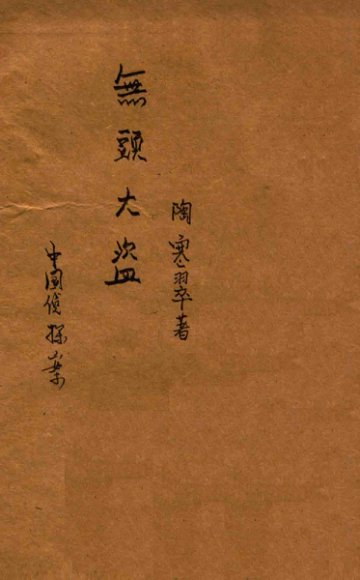 陶寒翠著
無頭大盜
中國偵探案